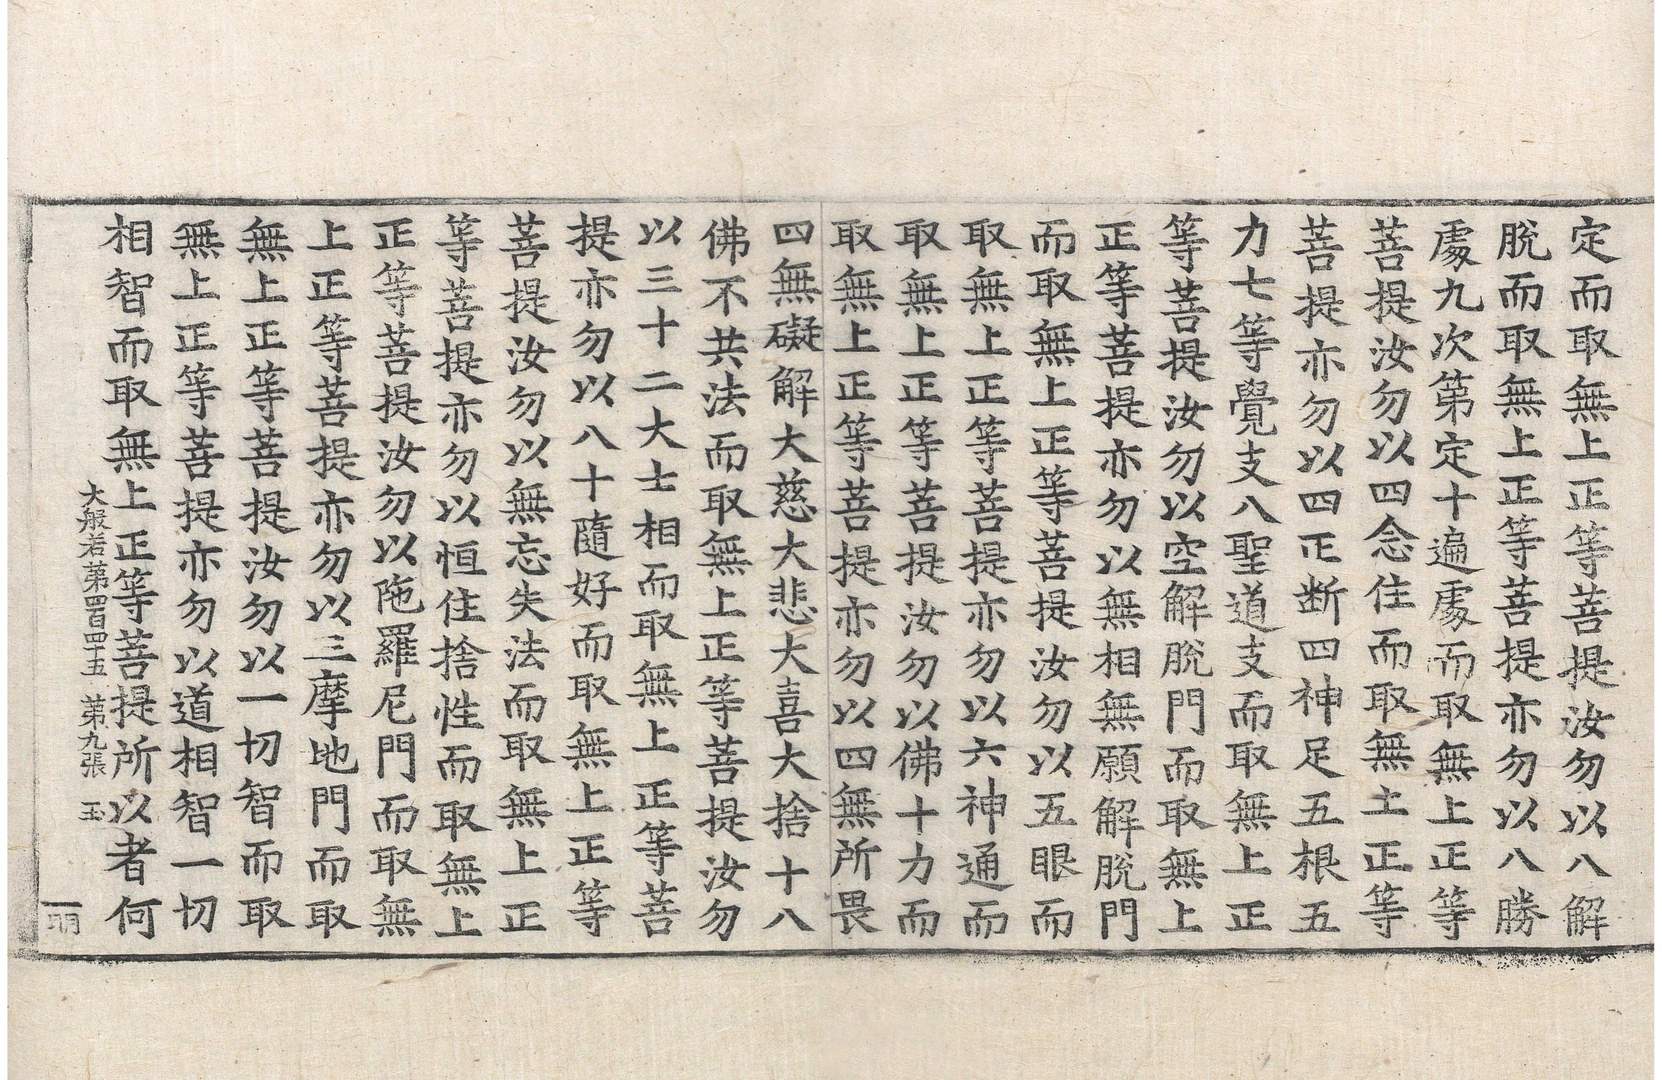 定而取無上正等菩提汝勿以八解
脫而取無上正等菩提亦勿以八勝
處九次第定十遍處而取無上正等
菩提汝勿以四念住而取無上正等
菩提亦勿以四正断四神足五根五
力七等覺支八聖道支而取無上正
等菩提汝勿以空解脫門而取無上
正等菩提亦勿以無相無願解脫門
而取無上正等菩提汝勿以五眼而
取無上正等菩提亦勿以六神通而
取無上正等菩提汝勿以佛十力而
取無上正等菩提亦勿以四無所畏
四無礙解大慈大悲大喜大捨十八
佛不共法而取無上正等菩提汝勿
以三十二大士相而取無上正等菩
提亦勿以八十隨好而取無上正等
菩提汝勿以無忘失法而取無上正
等菩提亦勿以恒住捨性而取無上
正等菩提汝勿以陁羅尼門而取無
上正等菩提亦勿以三摩地門而取
無上正等菩提汝勿以一切智而取
無上正等菩提亦勿以道相智一切
相智而取無上正等菩提所以者何
大般若第四百四十五 第九張 玉